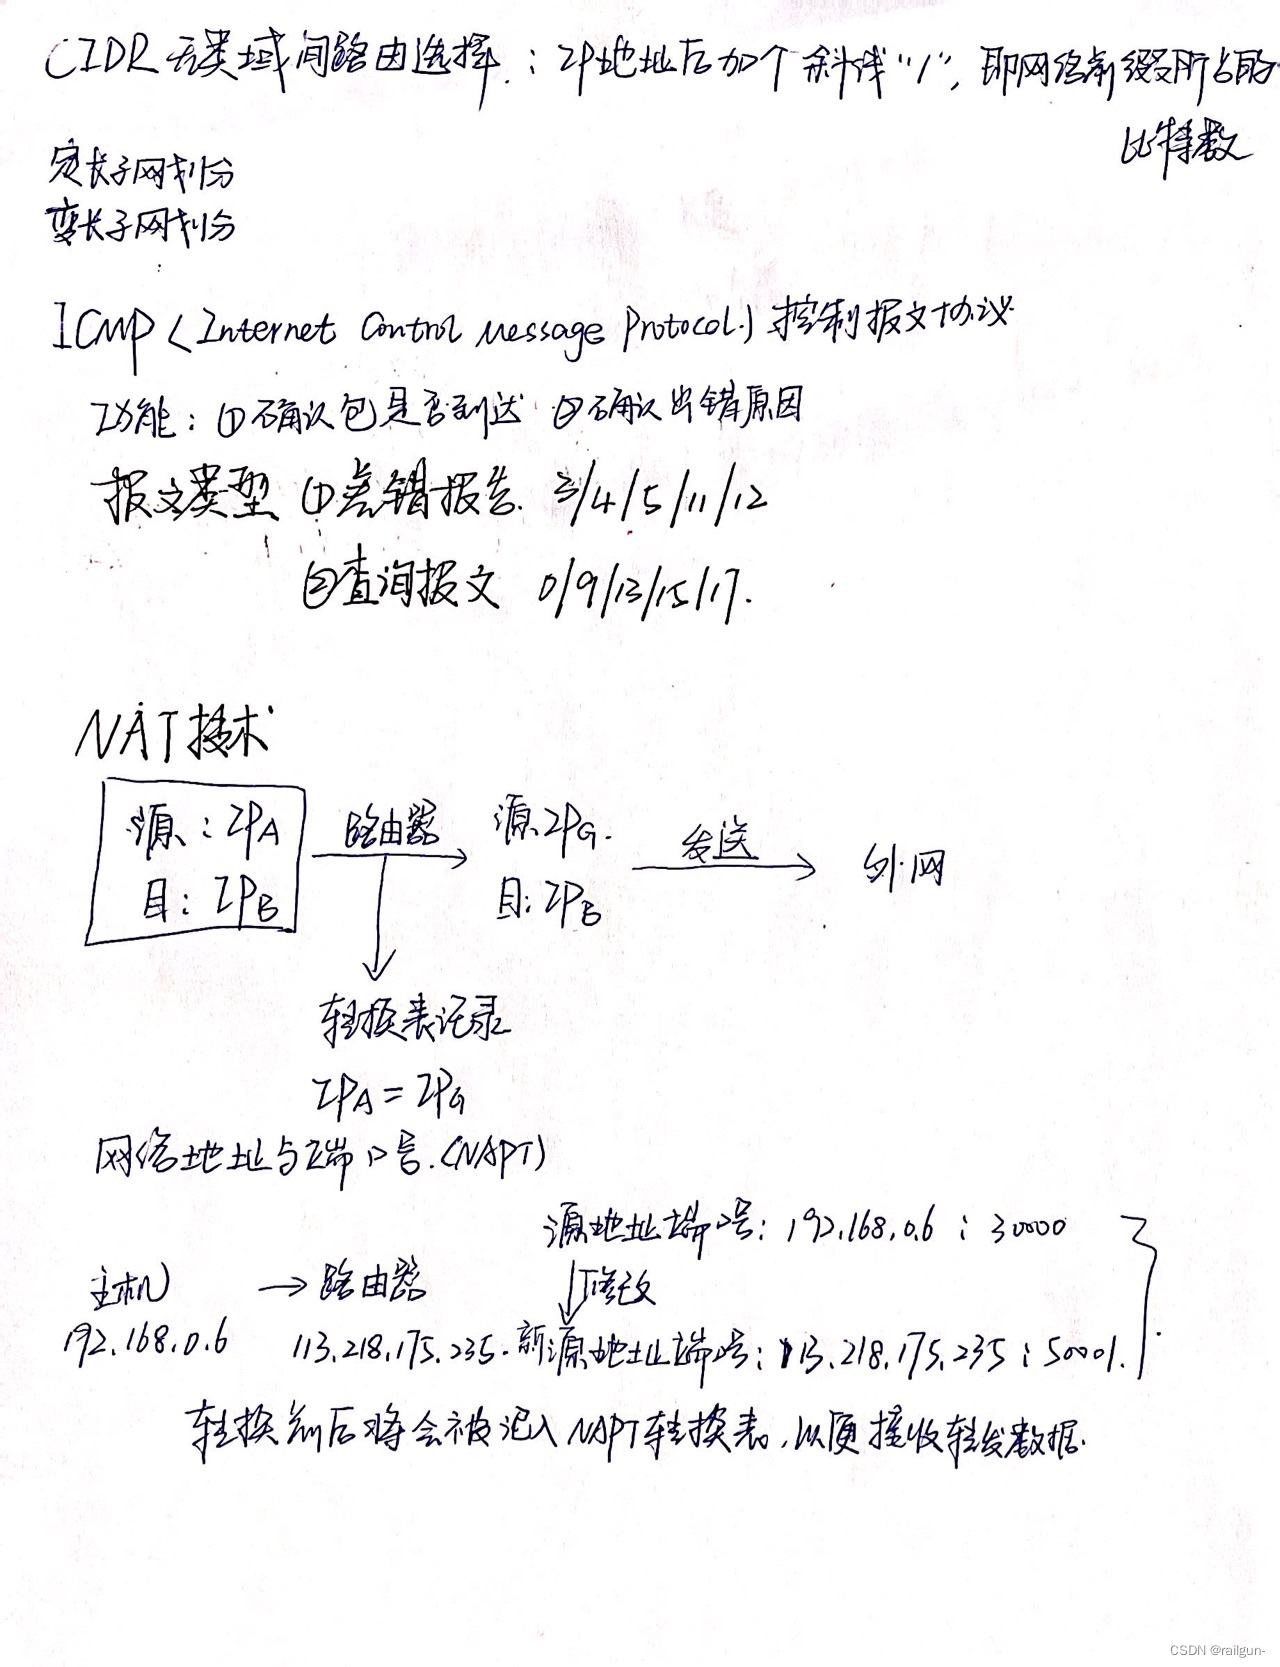 CIDR 无类域间路由选择：IP地址后加个斜线“/”，即网络前缀所占的
比特数
定长子网划分
变长子网划分
ICMP (Internet Control Message Protocol) 控制报文协议
功能：①确认包是否到达 ②确认出错原因
报文类型 ①差错报告 3/4/5/11/12
②查询报文 0/9/13/15/17.
NAT技术
源：IPA 路由器 源IPG. 发送 外网
目：IPB 目：IPB
转换表记录
IPA = IPG
网络地址与端口号(NAPT)
源地址端口号：192.168.0.6：30000
主机 → 路由器 修改
192.168.0.6 113.218.175.235 新源地址端口号：113.218.175.235：50001.
转换前后将会被记入NAPT转换表，以便接收转发数据.
CSDN @railgun-